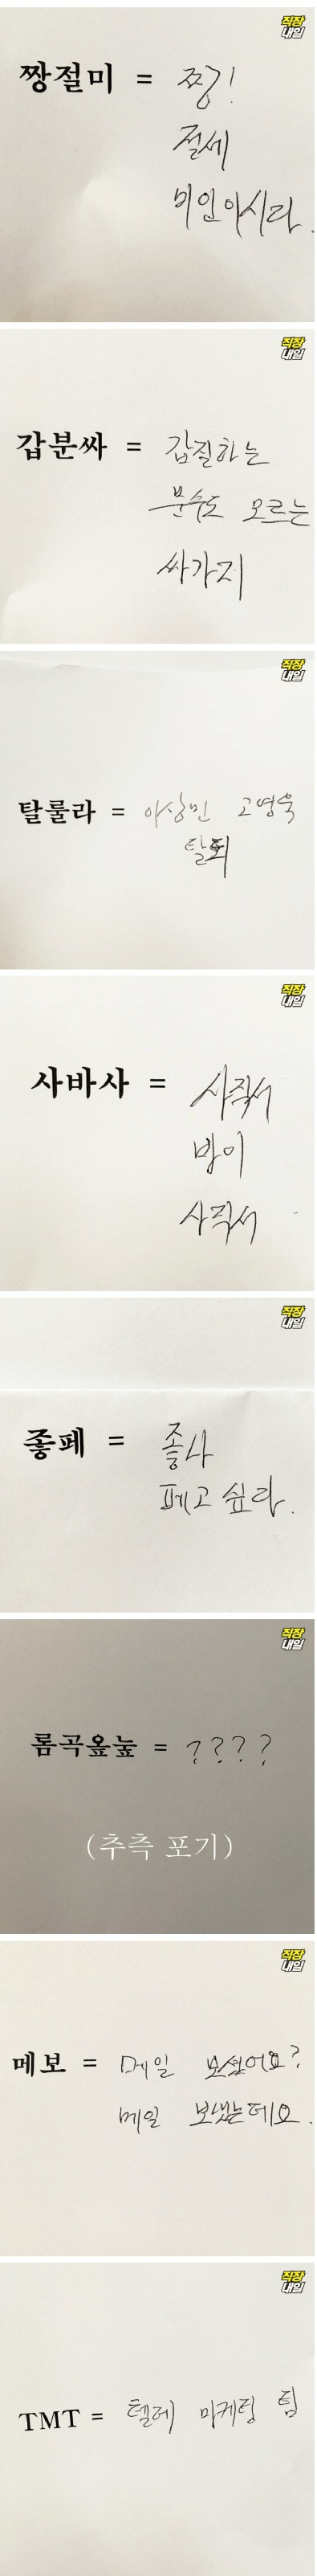 직장
내일
짱절미 = 짱!
절세
미인이시라.
직장
내일
갑분싸 = 갑질하는
분수도 모르는
싸가지
직장
내일
탈룰라 = 이상민 고영욱
탈퇴
직장
내일
사바사 = 사직서
밥이
사직서
직장
내일
좋페 = 좋나
페고 싶다.
직장
내일
롬곡옾눞 = ????
(추측 포기)
직장
내일
메보 = 메일 보셨어요?
메일 보냈는데요.
직장
내일
TMT = 텔레 마케팅 팀